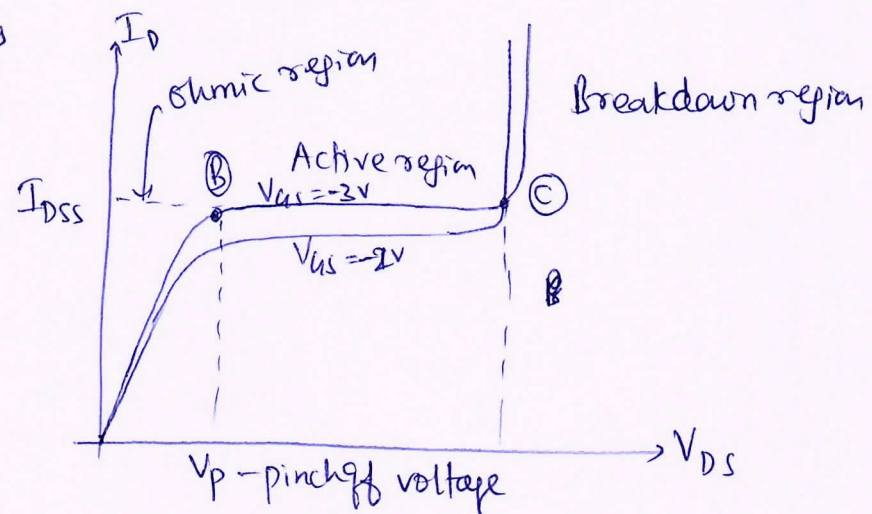 I_D
Ohmic region
Breakdown region
Active region
B
V_GS = -3V
I_DSS
C
V_GS = -2V
V_DS
V_P - pinchoff voltage